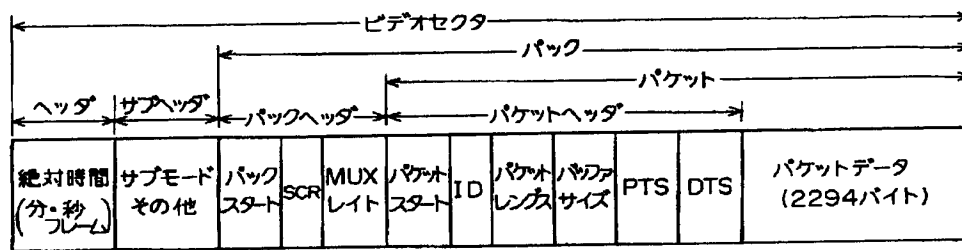 ビデオセクタ
パック
パケット
ヘッダ サブヘッダ パックヘッダ パケットヘッダ
絶対時間
(分・秒
フレーム)
サブモード
その他
パック
スタート
SCR
MUX
レイト
パケット
スタート
ID
パケット
レングス
バッファ
サイズ
PTS
DTS
パケットデータ
(2294バイト)